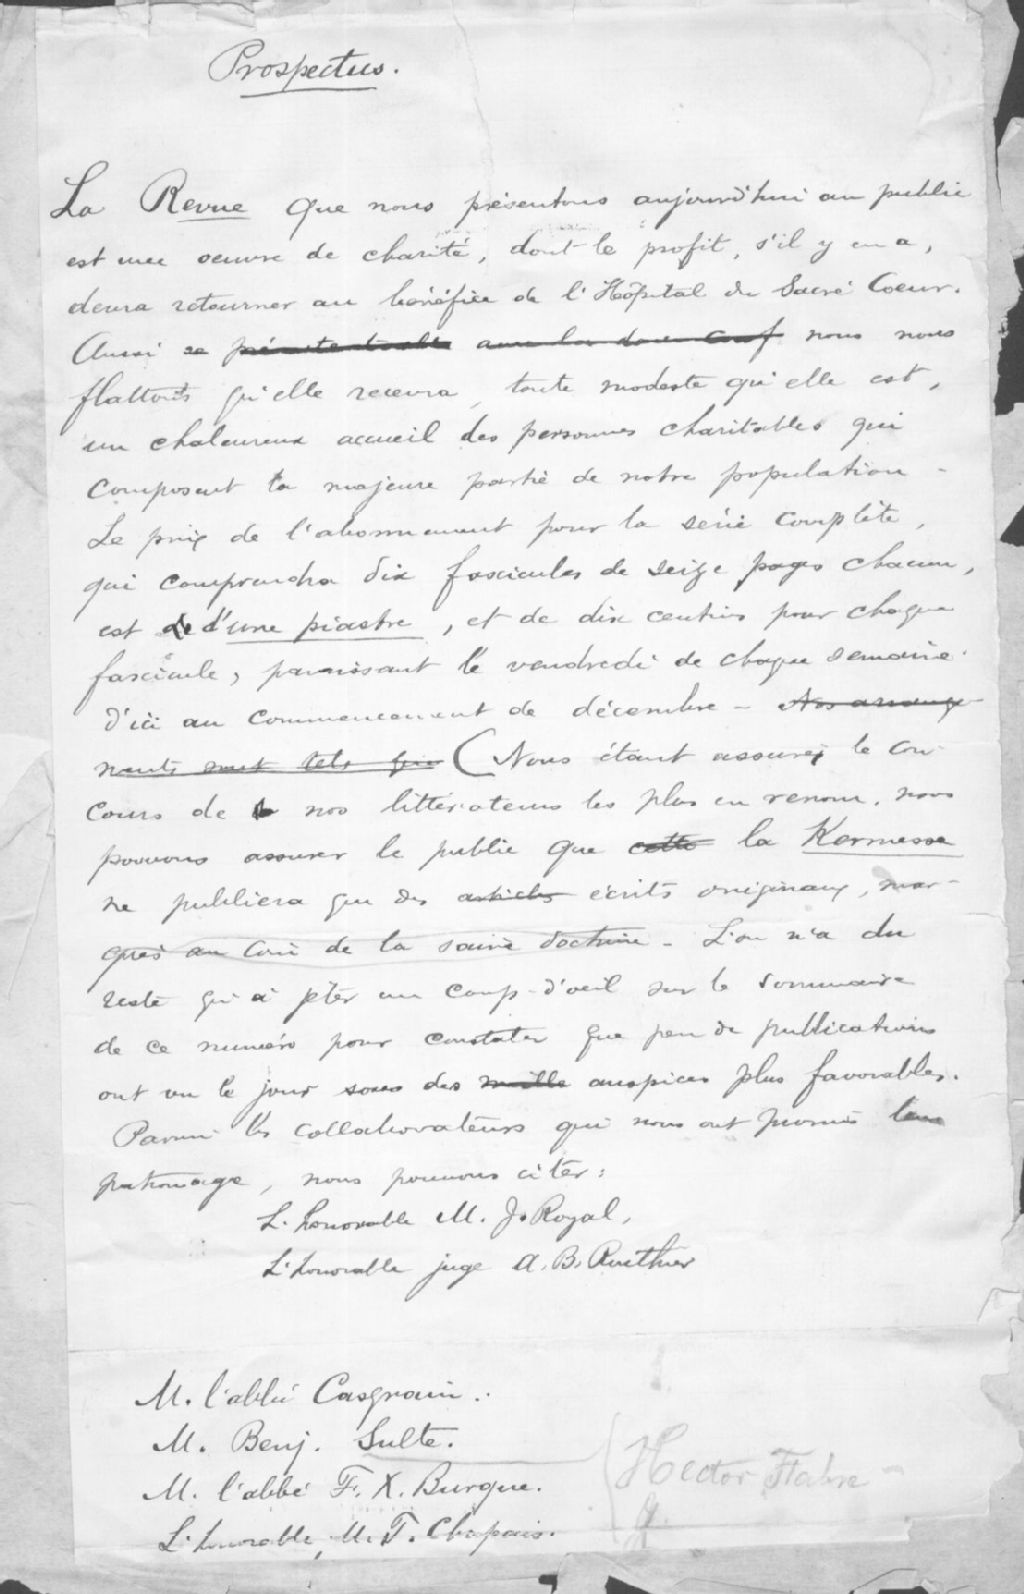 Prospectus.
La Revue que nous présentons aujourd'hui au public
est une oeuvre de charité, dont le profit, s'il y en a,
devra retourner au bénéfice de l'Hôpital du Sacré Coeur.
Aussi se nous nous
flattons qu'elle recevra, toute modeste qu'elle est,
un chaleureux accueil des personnes charitables qui
composent la majeure partie de notre population -
Le prix de l'abonnement pour la série complète,
qui comprendra dix fascicules de seize pages chacun,
est de d'une piastre, et de dix centins pour chaque
fascicule, paraissant le vendredi de chaque semaine
d'ici au commencement de décembre - Nos arrange
ments sont tels que (Nous étant assurés le con
cours de nos littérateurs les plus en renom, nous
pouvons assurer le public que cette la Kermesse
ne publiera que des articles écrits originaux, mar-
qués au coin de la saine doctrine - L'on n'a du
reste qu'à jeter un coup-d'oeil sur le sommaire
de ce numéro pour constater que peu de publications
ont vu le jour sous des meille auspices plus favorables.
Parmi les collaborateurs qui nous ont promis leur
patronage, nous pouvons citer:
L'honorable M. J. Royal,
L'honorable juge A. B. Routhier
M. l'abbé Casgrain.
M. Benj. Sulte.
M. l'abbé F. X. Burque.
L'honorable, M. T. Chapais.
(Hector Fabre -